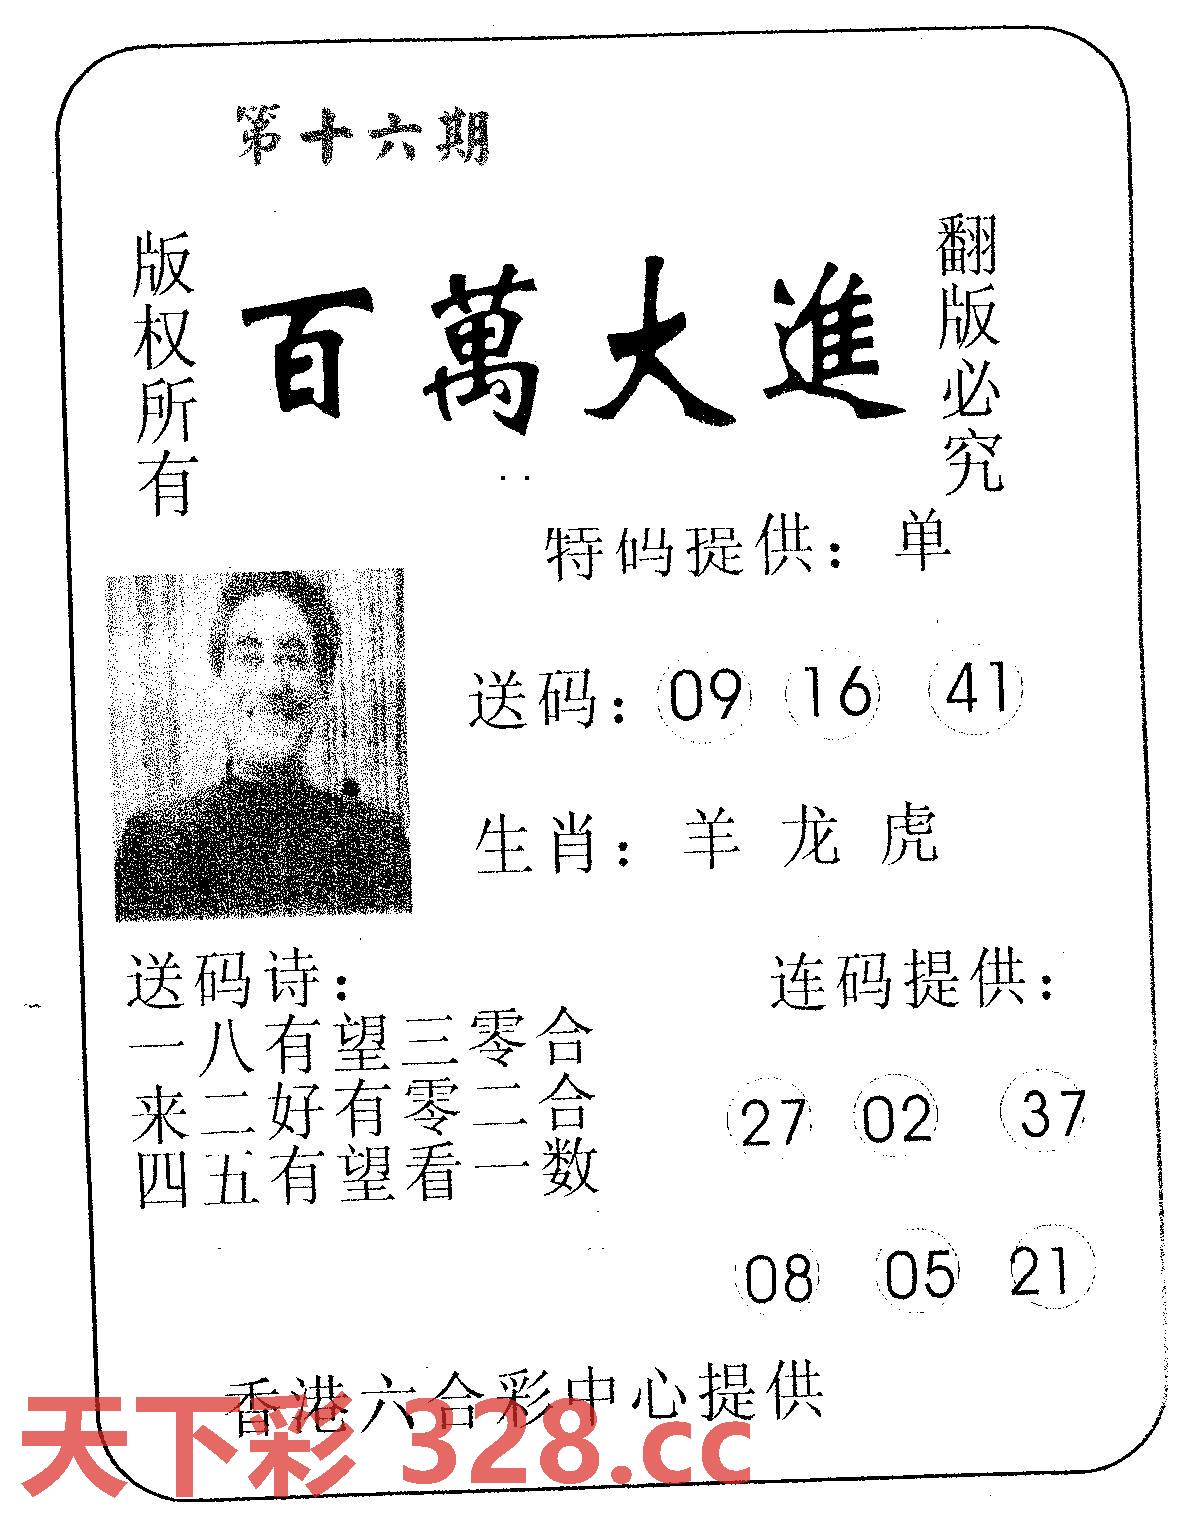 第十六期
版权所有
百萬大進
翻版必究
特码提供：单
送码：09 16 41
生肖：羊 龙 虎
送码诗：
一八有望三零合
来二好有零二合
四五有望看一数
连码提供：
27 02 37
08 05 21
香港六合彩中心提供
天下彩 328.cc